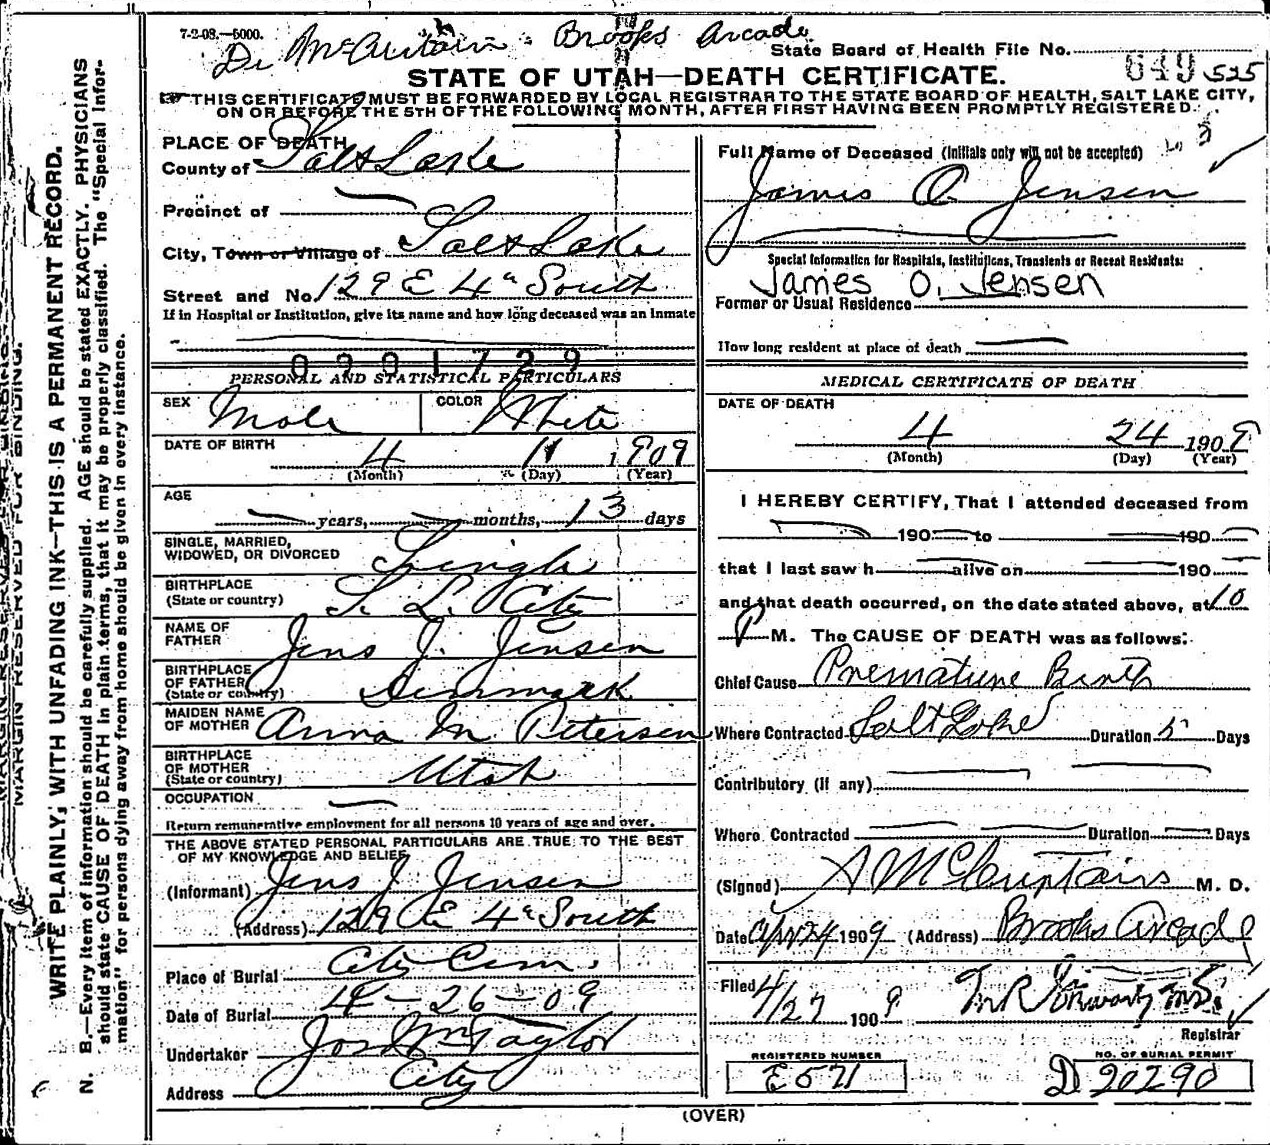 7-2-08.—5000.
Dr McCurtain. Brooks Arcade
State Board of Health File No. 649 525
STATE OF UTAH—DEATH CERTIFICATE.
THIS CERTIFICATE MUST BE FORWARDED BY LOCAL REGISTRAR TO THE STATE BOARD OF HEALTH, SALT LAKE CITY,
ON OR BEFORE THE 5TH OF THE FOLLOWING MONTH, AFTER FIRST HAVING BEEN PROMPTLY REGISTERED.
MARGIN RESERVED FOR BINDING.
WRITE PLAINLY, WITH UNFADING INK—THIS IS A PERMANENT RECORD.
N. B.—Every item of information should be carefully supplied. AGE should be stated EXACTLY. PHYSICIANS
should state CAUSE OF DEATH in plain terms, that it may be properly classified. The "Special Infor-
mation" for persons dying away from home should be given in every instance.
PLACE OF DEATH
County of Salt Lake
Precinct of
City, Town or Village of Salt Lake
Street and No. 129 E 4th South
If in Hospital or Institution, give its name and how long deceased was an Inmate
0291729
PERSONAL AND STATISTICAL PARTICULARS
SEX Male COLOR White
DATE OF BIRTH 4 11 1909
(Month) (Day) (Year)
AGE
years, months, 13 days
SINGLE, MARRIED,
WIDOWED, OR DIVORCED Single
BIRTHPLACE
(State or country) S. L. City
NAME OF
FATHER Jens J. Jensen
BIRTHPLACE
OF FATHER
(State or country) Denmark
MAIDEN NAME
OF MOTHER Anna M Petersen
BIRTHPLACE
OF MOTHER
(State or country) Utah
OCCUPATION
Return remunerative employment for all persons 10 years of age and over.
THE ABOVE STATED PERSONAL PARTICULARS ARE TRUE TO THE BEST
OF MY KNOWLEDGE AND BELIEF
(Informant) Jens J Jensen
(Address) 129 E 4th South
Place of Burial City Cem.
Date of Burial 4-26-09
Undertaker Jos Wm Taylor
Address City
Full Name of Deceased (Initials only will not be accepted)
James O. Jensen
Special Information for Hospitals, Institutions, Transients or Recent Residents:
James O. Jensen
Former or Usual Residence
How long resident at place of death
MEDICAL CERTIFICATE OF DEATH
DATE OF DEATH
4 24 1909
(Month) (Day) (Year)
I HEREBY CERTIFY, That I attended deceased from
190 to 190
that I last saw h alive on 190
and that death occurred, on the date stated above, at 10
P M. The CAUSE OF DEATH was as follows:
Chief Cause Premature Birth
Where Contracted Salt Lake Duration 5 Days
Contributory (if any)
Where Contracted Duration Days
(Signed) M. D.
Date Apr 24 1909 (Address) Brooks Arcade
Filed 4/27 1909
Registrar
REGISTERED NUMBER
E 571
NO. OF BURIAL PERMIT
D 90290
(OVER)